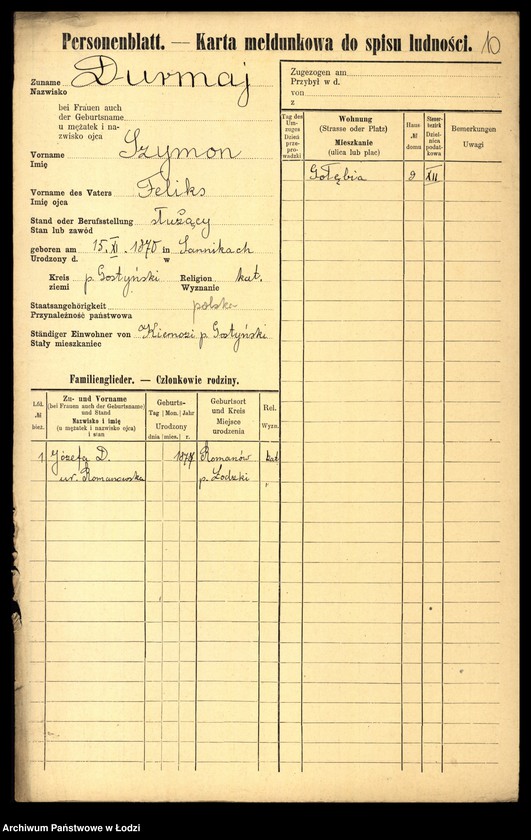 Personenblatt. — Karta meldunkowa do spisu ludności. 10
Zuname Durmaj
Nazwisko
bei Frauen auch
der Geburtsname
u mężatek i na-
zwisko ojca
Vorname Szymon
Imię
Vorname des Vaters Feliks
Imię ojca
Stand oder Berufsstellung służący
Stan lub zawód
geboren am 15. XI. 1870 in Sannikach
Urodzony d. w
Kreis p. Gostyński Religion kat.
ziemi Wyznanie
Staatsangehörigkeit polska
Przynależność państwowa
Ständiger Einwohner von Kiernozi p. Gostyński
Stały mieszkaniec
Familienglieder. — Członkowie rodziny.
Lfd. № bież.
Zu- und Vorname
(bei Frauen auch der Geburtsname)
und Stand
Nazwisko i imię
(u mężatek i nazwisko ojca)
i stan
Geburts-
Tag Mon. Jahr
Urodzony
dnia mies. r.
Geburtsort
und Kreis
Miejsce
urodzenia
Rel.
Wyzn.
1 Józefa D. 1874 Romanów kat
ur. Romanowska p. Łodzki "
Zugezogen am
Przybył w d.
von
z
Tag des
Um-
zuges
Dzień
prze-
prowadzki
Wohnung
(Strasse oder Platz)
Mieszkanie
(ulica lub plac)
Haus
№
domu
Steuer-
bezirk
Dziel-
nica
podat-
kowa
Bemerkungen
Uwagi
Gołębia 9 XII
Archiwum Państwowe w Łodzi